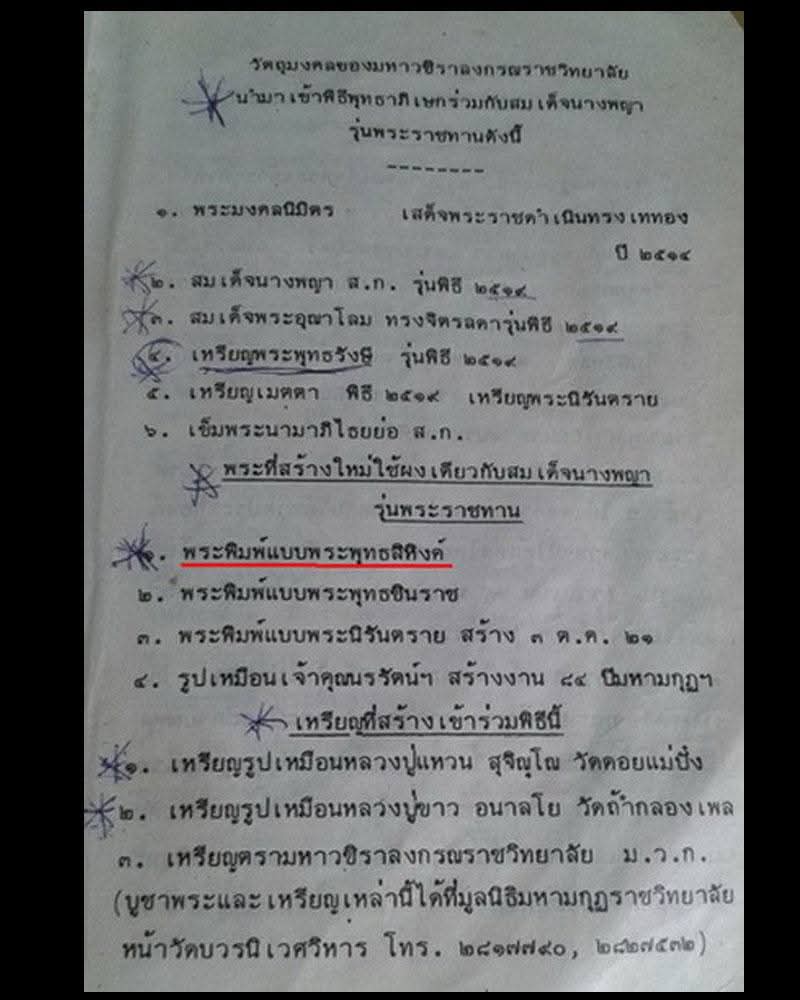 วัตถุมงคลของมหาวชิราลงกรณราชวิทยาลัย
นำมาเข้าพิธีพุทธาภิเษกร่วมกับสมเด็จนางพญา
รุ่นพระราชทานดังนี้
--------
๑. พระมงคลนิมิตร เสด็จพระราชดำเนินทรงเททอง
ปี ๒๕๑๔
๒. สมเด็จนางพญา ส.ก. รุ่นพิธี ๒๕๑๙
๓. สมเด็จพระอุณาโลม ทรงจิตรลดารุ่นพิธี ๒๕๑๙
๔. เหรียญพระพุทธรังษี รุ่นพิธี ๒๕๑๙
๕. เหรียญเมตตา พิธี ๒๕๑๙ เหรียญพระนิรันตราย
๖. เข็มพระนามาภิไธยย่อ ส.ก.
พระที่สร้างใหม่ใช้ผงเดียวกับสมเด็จนางพญา
รุ่นพระราชทาน
๑. พระพิมพ์แบบพระพุทธสิหิงค์
๒. พระพิมพ์แบบพระพุทธชินราช
๓. พระพิมพ์แบบพระนิรันตราย สร้าง ๓ ต.ค. ๒๑
๔. รูปเหมือนเจ้าคุณนรรัตน์ฯ สร้างงาน ๘๔ ปีมหามกุฏฯ
เหรียญที่สร้างเข้าร่วมพิธีนี้
๑. เหรียญรูปเหมือนหลวงปู่แหวน สุจิณฺโณ วัดดอยแม่ปั๋ง
๒. เหรียญรูปเหมือนหลวงปู่ขาว อนาลโย วัดถ้ำกลองเพล
๓. เหรียญตรามหาวชิราลงกรณราชวิทยาลัย ม.ว.ก.
(บูชาพระและเหรียญเหล่านี้ได้ที่มูลนิธิมหามกุฏราชวิทยาลัย
หน้าวัดบวรนิเวศวิหาร โทร. ๒๘๑๗๗๙๐, ๒๘๒๗๕๓๒)